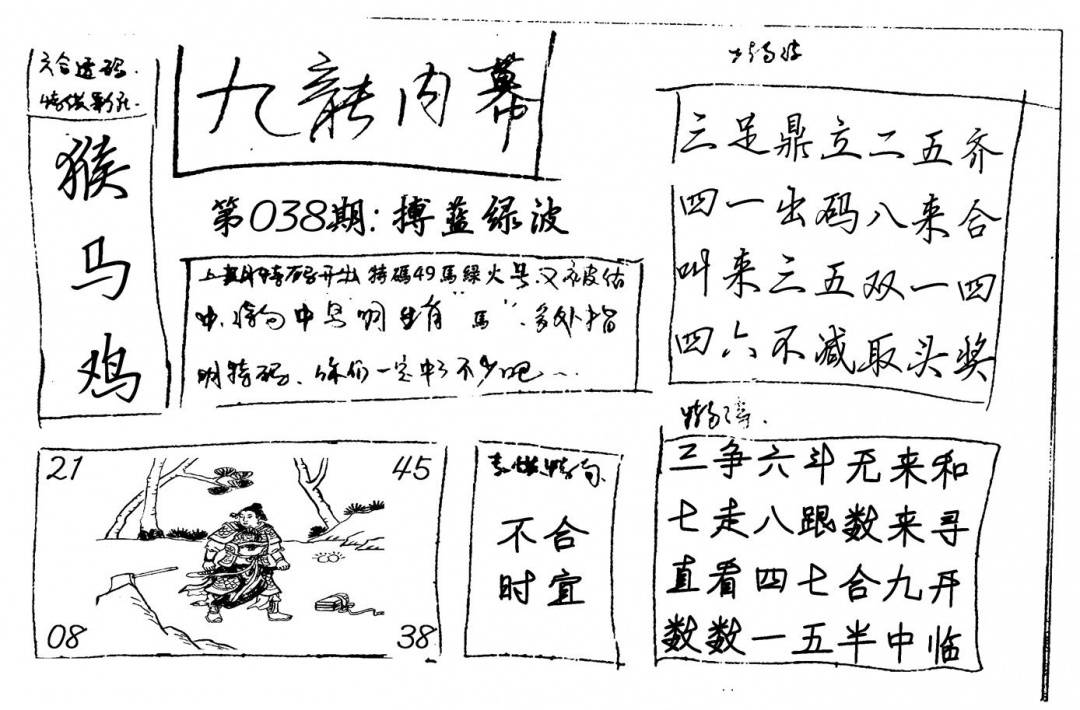 六合透码
猴
马
鸡
九龍内幕
第038期:搏蓝绿波
上期特码开出特碼49馬綠火号又被估
中 中 有"馬" 多处指
明特码 你们一定中了不少吧
三足鼎立二五齐
四一出码八来合
叫来三五双一四
四六不减取头奖
21
45
08
38
不合
时宜
三争六斗无来和
七走八跟数来寻
直看四七合九开
数数一五半中临